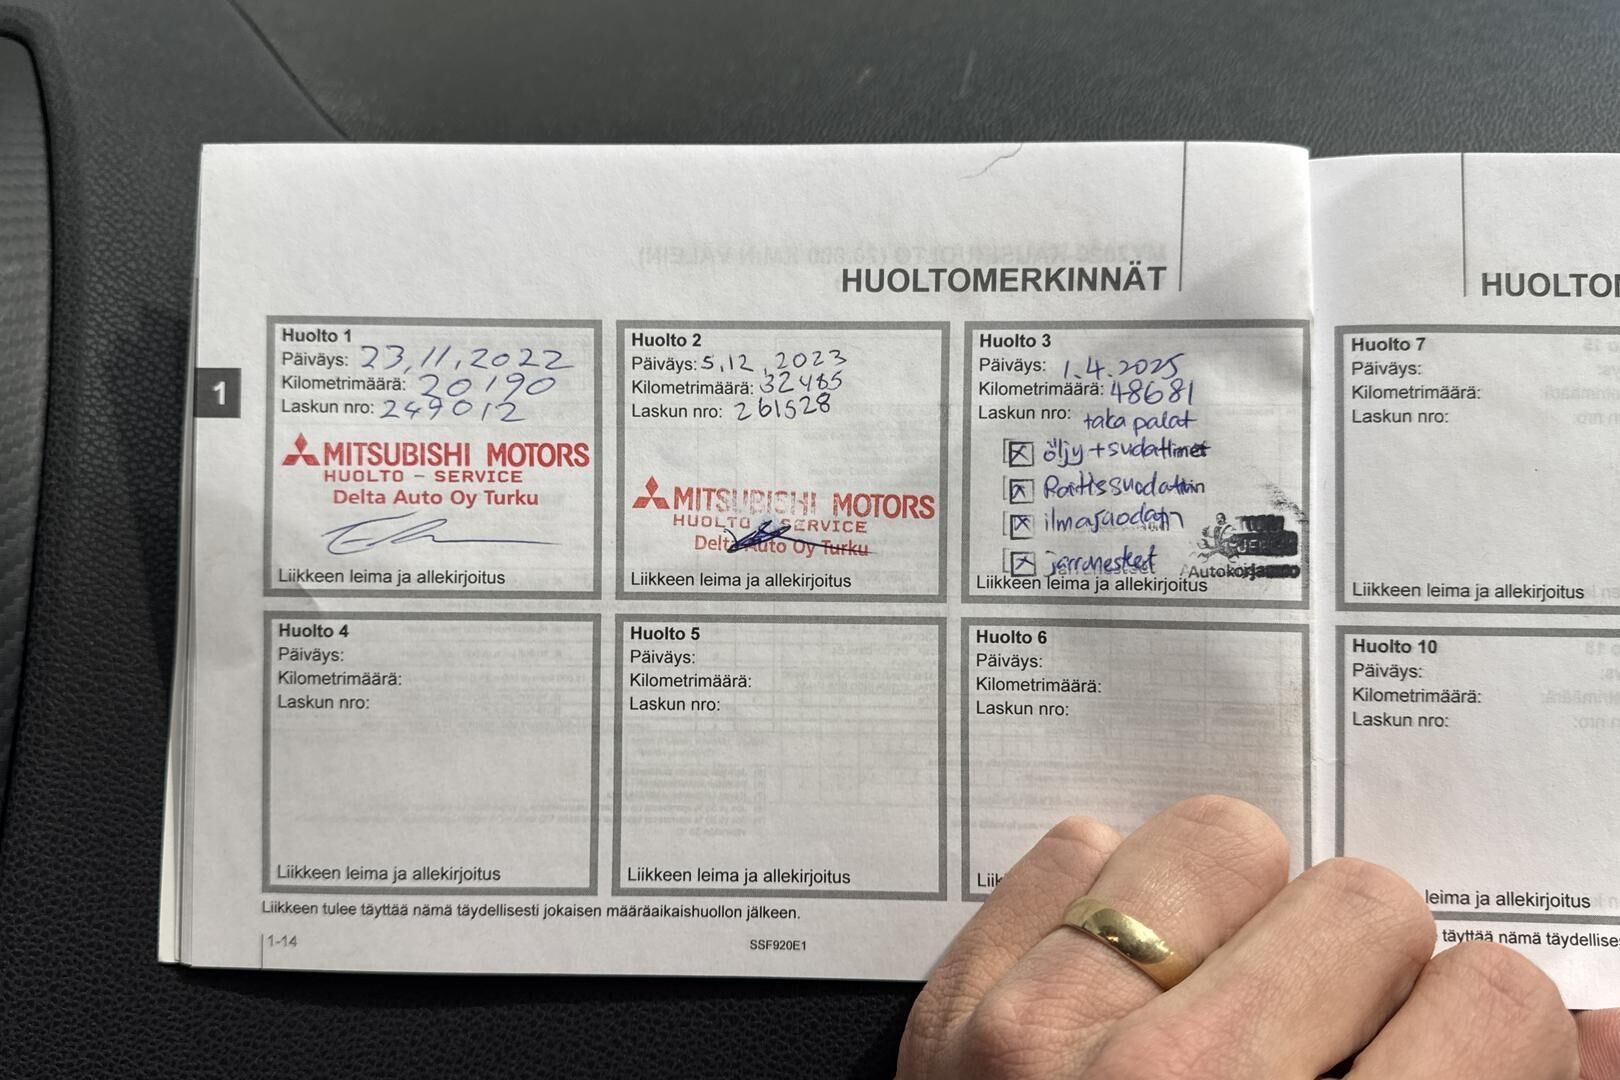 HUOLTOMERKINNÄT
1
Huolto 1
Päiväys: 23.11.2022
Kilometrimäärä: 20190
Laskun nro: 249012
MITSUBISHI MOTORS
HUOLTO - SERVICE
Delta Auto Oy Turku
Liikkeen leima ja allekirjoitus
Huolto 2
Päiväys: 5.12.2023
Kilometrimäärä: 32485
Laskun nro: 261528
MITSUBISHI MOTORS
HUOLTO - SERVICE
Delta Auto Oy Turku
Liikkeen leima ja allekirjoitus
Huolto 3
Päiväys: 1.4.2025
Kilometrimäärä: 48681
Laskun nro:
taka palat
öljy + sudattimet
ilmasuodatin
järrunesteet
Liikkeen leima ja allekirjoitus
Huolto 4
Päiväys:
Kilometrimäärä:
Laskun nro:
Liikkeen leima ja allekirjoitus
Huolto 5
Päiväys:
Kilometrimäärä:
Laskun nro:
Liikkeen leima ja allekirjoitus
Huolto 6
Päiväys:
Kilometrimäärä:
Laskun nro:
Liik
Liikkeen tulee täyttää nämä täydellisesti jokaisen määräaikaishuollon jälkeen.
1-14
SSF920E1
HUOLTO
Huolto 7
Päiväys:
Kilometrimäärä:
Laskun nro:
Liikkeen leima ja allekirjoitus
Huolto 10
Päiväys:
Kilometrimäärä:
Laskun nro:
leima ja allekirjoitus
täyttää nämä täydellise